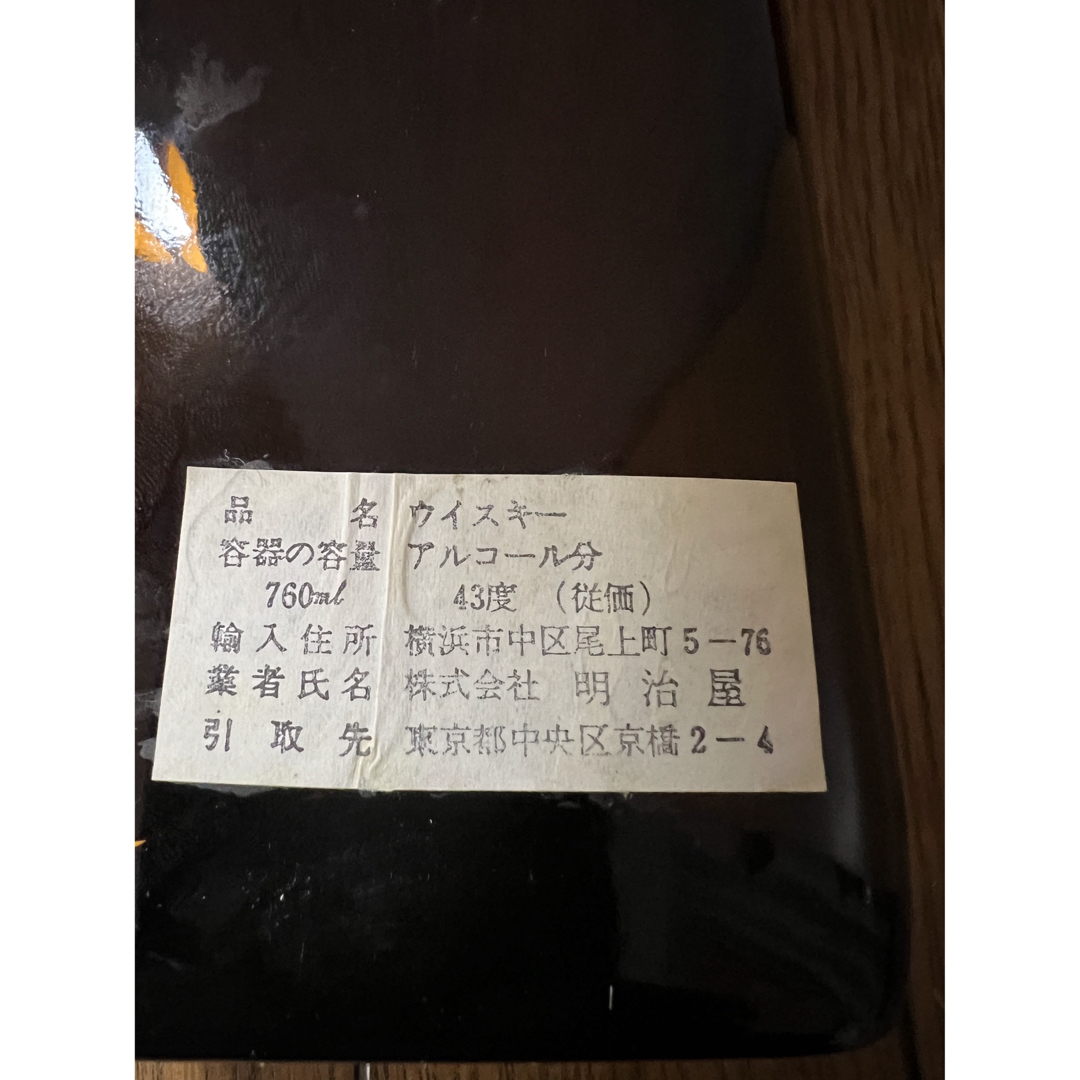 品名 ウイスキー
容器の容量 アルコール分
760ml 43度 (従価)
輸入住所 横浜市中区尾上町5-76
業者氏名 株式会社 明治屋
引取先 東京都中央区京橋2-4